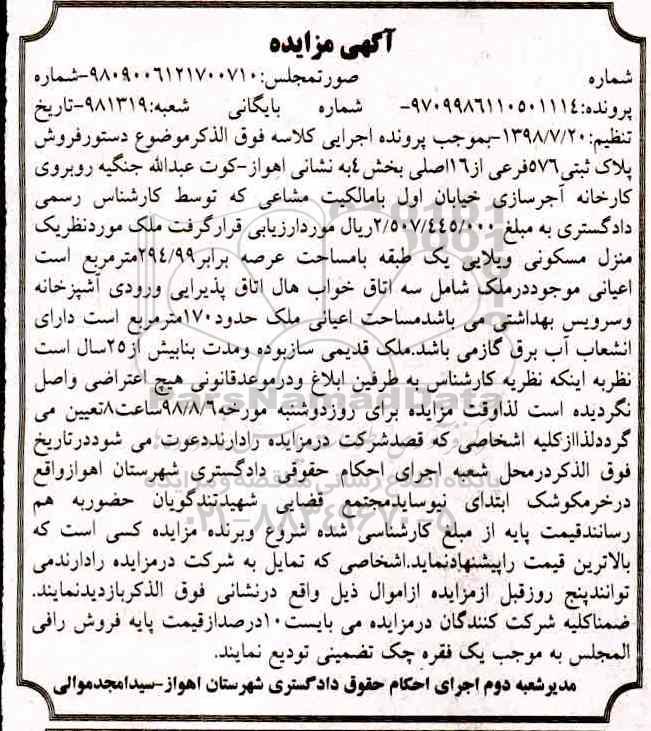 آگهی مزایده
شماره صورتمجلس:۹۸۰۹۰۰۶۱۲۱۷۰۰۷۱۰-شماره
پرونده:۹۷۰۹۹۸۶۱۱۰۵۰۱۱۱۴- شماره بایگانی شعبه:۹۸۱۳۱۹-تاریخ
تنظیم:۱۳۹۸/۷/۲۰-بموجب پرونده اجرایی کلاسه فوق الذکرموضوع دستورفروش
پلاک ثبتی۵۷۶فرعی از۱۶اصلی بخش٤به نشانی اهواز-کوت عبدالله جنگیه روبروی
کارخانه آجرسازی خیابان اول بامالکیت مشاعی که توسط کارشناس رسمی
دادگستری به مبلغ ۲/۵۰۷/٤٤۵/۰۰۰ریال موردارزیابی قرارگرفت ملک موردنظریک
منزل مسکونی ویلایی یک طبقه بامساحت عرصه برابر۲۹٤/۹۹مترمربع است
اعیانی موجوددرملک شامل سه اتاق خواب هال اتاق پذیرایی ورودی آشپزخانه
وسرویس بهداشتی می باشدمساحت اعیانی ملک حدود۱۷۰مترمربع است دارای
انشعاب آب برق گازمی باشد.ملک قدیمی سازبوده ومدت بنابیش از۲۵سال است
نظربه اینکه نظریه کارشناس به طرفین ابلاغ ودرموعدقانونی هیچ اعتراضی واصل
نگردیده است لذاوقت مزایده برای روزدوشنبه مورخه۹۸/۸/۶ساعت۸تعیین می
گرددلذاازکلیه اشخاصی که قصدشرکت درمزایده رادارنددعوت می شوددرتاریخ
فوق الذکردرمحل شعبه اجرای احکام حقوقی دادگستری شهرستان اهوازواقع
درخرمکوشک ابتدای نیوسایدمجتمع قضایی شهیدتندگویان حضوربه هم
رسانندقیمت پایه از مبلغ کارشناسی شده شروع وبرنده مزایده کسی است که
بالاترین قیمت راپیشنهادنماید.اشخاصی که تمایل به شرکت درمزایده رادارندمی
توانندپنج روزقبل ازمزایده ازاموال ذیل واقع درنشانی فوق الذکربازدیدنمایند.
ضمناکلیه شرکت کنندگان درمزایده می بایست۱۰درصدازقیمت پایه فروش رافی
المجلس به موجب یک فقره چک تضمینی تودیع نمایند.
مدیرشعبه دوم اجرای احکام حقوق دادگستری شهرستان اهواز-سیدامجدموالی
ParsNamadData
پایگاه اطلاع رسانی مناقصه و مزایده
۰۲۱-۸۸۳۴۹۶۷۰-۵